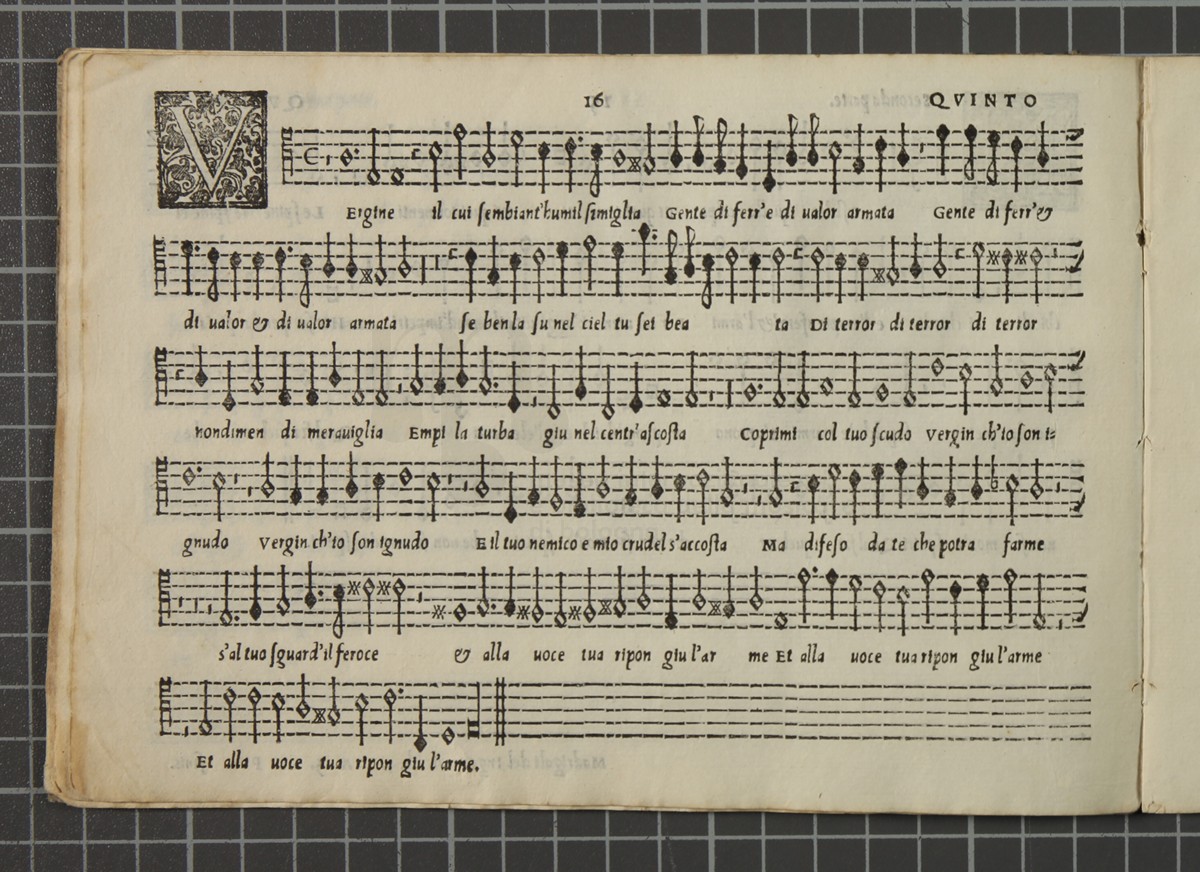 16
QVINTO
VErgine il cui sembiant'humil simiglia Gente di ferr'e di ualor armata Gente di ferr'&
di ualor & di ualor armata se ben la su nel ciel tu sei bea ta Di terror di terror di terror
nondimen di merauiglia Empi la turba giu nel centr'ascosta Coprimi col tuo scudo Vergin ch'io son i=
gnudo Vergin ch'io son ignudo E il tuo nemico e mio crudel s'accosta Ma difeso da te che potra farme
s'al tuo sguard'il feroce & alla uoce tua ripon giu l'ar me Et alla uoce tua ripon giu l'arme
Et alla uoce tua ripon giu l'arme.